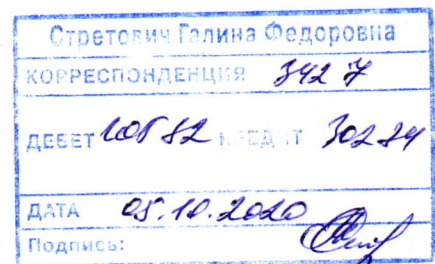 Стретович Галина Федоровна
КОРРЕСПОНДЕНЦИЯ 342 7
ДЕБЕТ КРЕДИТ 302 34
ДАТА 05.10.2020
Подпись: